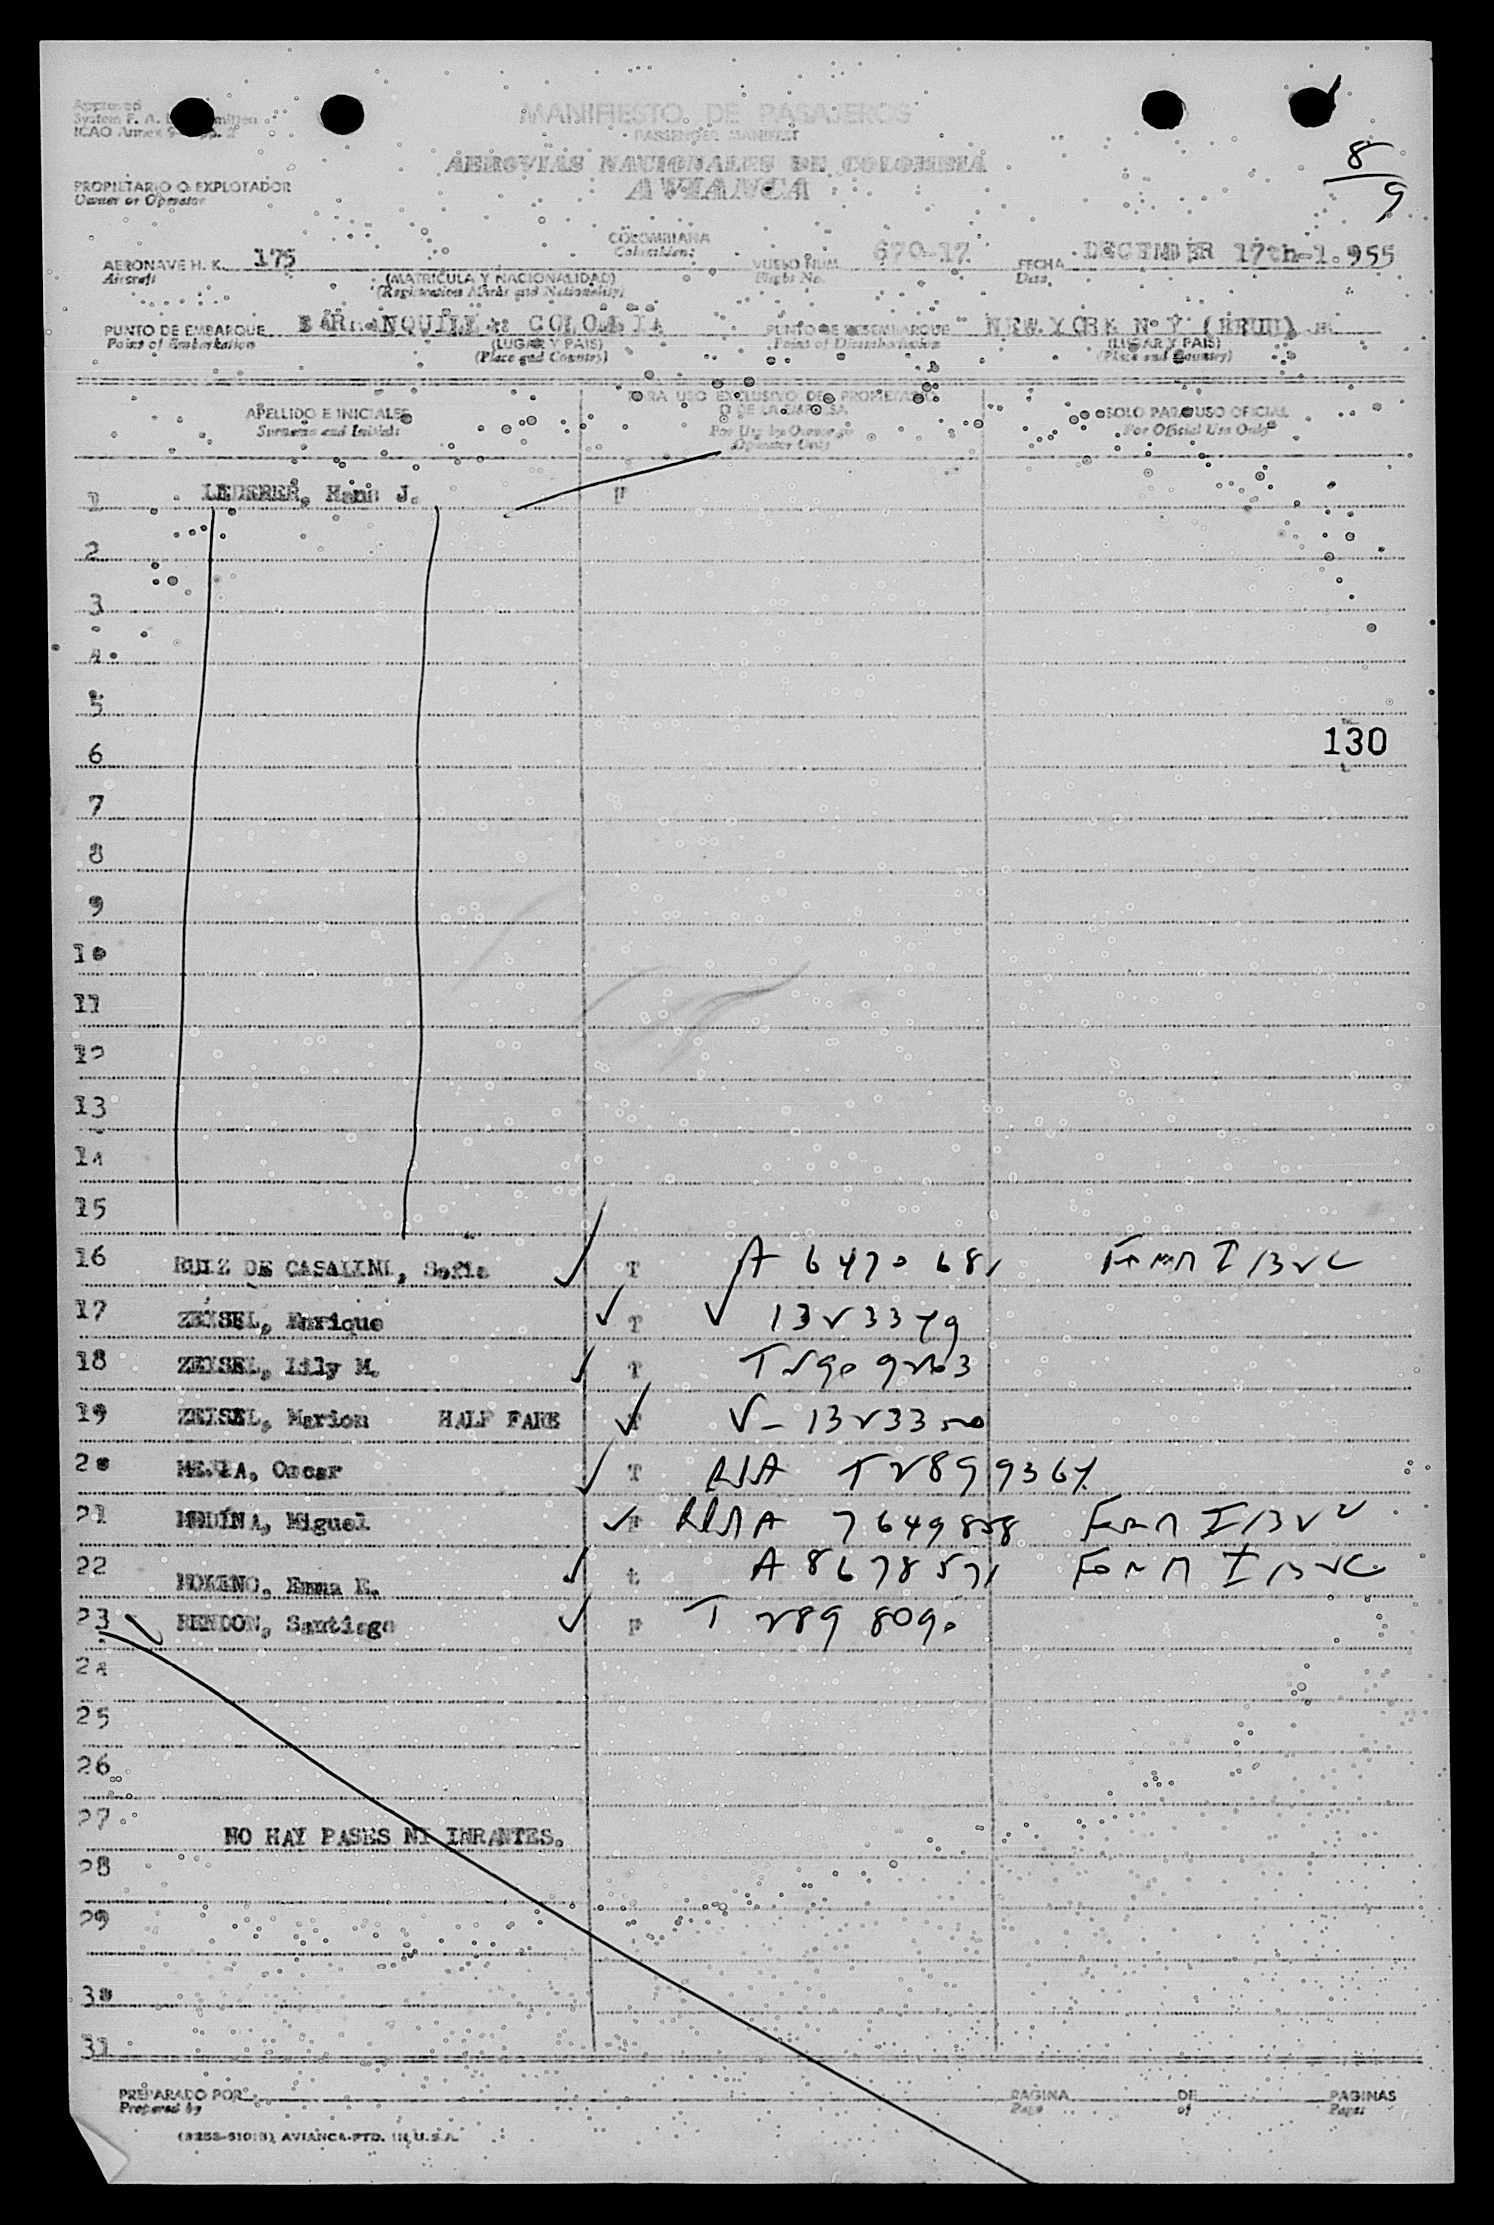 Approved
System F. A. L.
ICAO Annex 9
MANIFIESTO DE PASAJEROS
PASSENGER MANIFEST
AEROVIAS NACIONALES DE COLOMBIA
AVIANCA
8
9
PROPIETARIO O EXPLOTADOR
Owner or Operator
COLOMBIANA
Colombian:
AERONAVE H. K. 175 VUELO NUM. 670-17 FECHA DECEMBER 17th-1.955
Aircraft (MATRICULA Y NACIONALIDAD) Flight No. Date,
(Registration Marks and Nationality)
PUNTO DE EMBARQUE BARRANQUILLA COLOMBIA PUNTO DE DESEMBARQUE NEW.YORK N.Y
Point of Embarkation (LUGAR Y PAIS) Point of Disembarkation (LUGAR Y PAIS)
(Place and Country) (Place and Country)
APELLIDO E INICIALES PARA USO EXCLUSIVO DEL PROPIETARIO SOLO PARA USO OFICIAL
Surname and Initials O DE LA EMPRESA For Official Use Only
For Use by Owner or
Operator Only
1 LEDERER, Hans J. F
2
3
4
5
6 130
7
8
9
10
11
12
13
14
15
16 RUIZ DE CASALINI, Sofia T A 6470681 Form I 132C
17 ZEISEL, Enrique T 1323379
18 ZEISEL, Lily M. T
19 ZEISEL, Marion HALF FARE T V-
20 MEJIA, Oscar T T2899367
21 MEDINA, Miguel F 7649858 Form I 132
22 MORENO, Emma E. t A 8678571 Form I 132C
23 RENDON, Santiago F T 2898090
24
25
26
27
NO HAY PASES NI INFANTES.
28
29
30
31
PREPARADO POR PAGINA DE PAGINAS
Prepared by Page of Pages
AVIANCA-PTD. IN U.S.A.